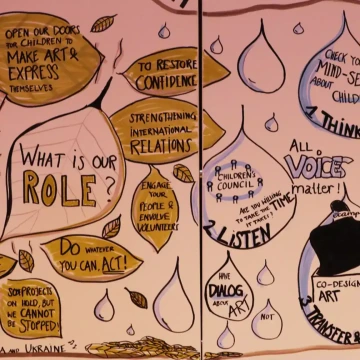 OPEN OUR DOORS
FOR CHILDREN TO
MAKE ART &
EXPRESS
THEMSELVES
TO RESTORE
CONFIDENCE
STRENGTHENING
INTERNATIONAL
RELATIONS
WHAT IS OUR
ROLE?
ENGAGE
YOUR
PEOPLE &
ENVOLVE
VOLUNTEERS
DO WHATEVER
YOU CAN, ACT!
PROJECTS
ON HOLD, BUT
WE CANNOT
BE STOPPED!
AND UKRAINE
CHECK YOU
MIND-SE
ABOUT
CHILD
1. THINK
ALL
VOICES
matter!
CHILDREN'S
COUNCIL
ARE YOU WILLING
TO TAKE THE TIME
IT TAKES?
2. LISTEN
HAVE
DIALOG
ABOUT
ART
NOT
CO-DESIGN
ART
3. TRANSFER